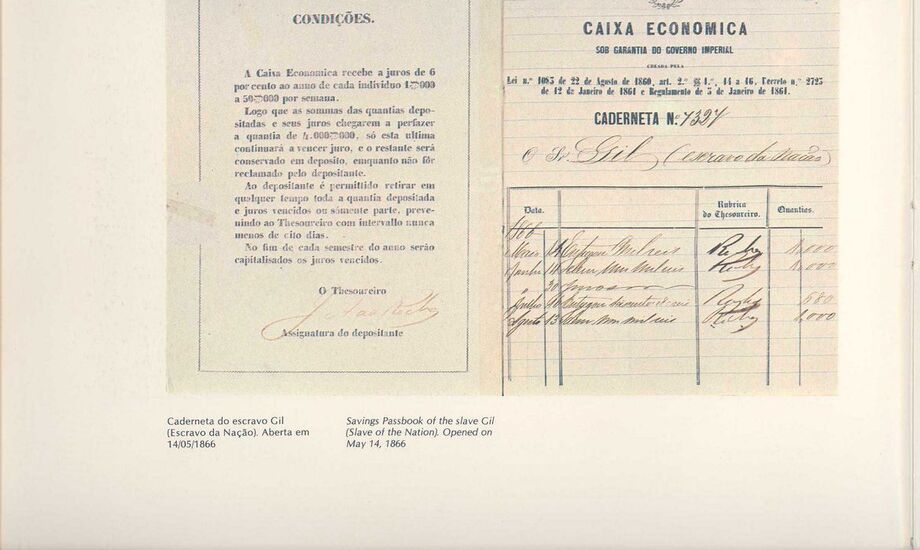 CONDIÇÕES.
A Caixa Economica recebe a juros de 6
por cento ao anno de cada individuo 1$000
a 50$000 por semana.
Logo que as sommas das quantias depo-
sitadas e seus juros chegarem a perfazer
a quantia de 4.000$000, só esta ultima
continuará a vencer juro, e o restante será
conservado em deposito, emquanto não fôr
reclamado pelo depositante.
Ao depositante é permittido retirar em
qualquer tempo toda a quantia depositada
e juros vencidos ou sómente parte, preve-
nindo ao Thesoureiro com intervallo nunca
menos de oito dias.
No fim de cada semestre do anno serão
capitalisados os juros vencidos.
O Thesoureiro
Assignatura do depositante
CAIXA ECONOMICA
SOB GARANTIA DO GOVERNO IMPERIAL
CREADA PELA
Lei n.º 1083 de 22 de Agosto de 1860, art. 2.º §§ 1.º, 14 a 16, Decreto n.º 2723
de 12 de Janeiro de 1861 e Regulamento de 5 de Janeiro de 1861.
CADERNETA N.º 7327
O Sr. Gil (escravo da Nação)
Data. Rubrica do Thesoureiro. Quantias.
1866
Maio 14 Entregou mil reis 1,000
Junho 11 Idem um mil reis 1,000
" 30
Julho 680
Agosto 13 Idem um mil reis 1,000
Caderneta do escravo Gil
(Escravo da Nação). Aberta em
14/05/1866
Savings Passbook of the slave Gil
(Slave of the Nation). Opened on
May 14, 1866